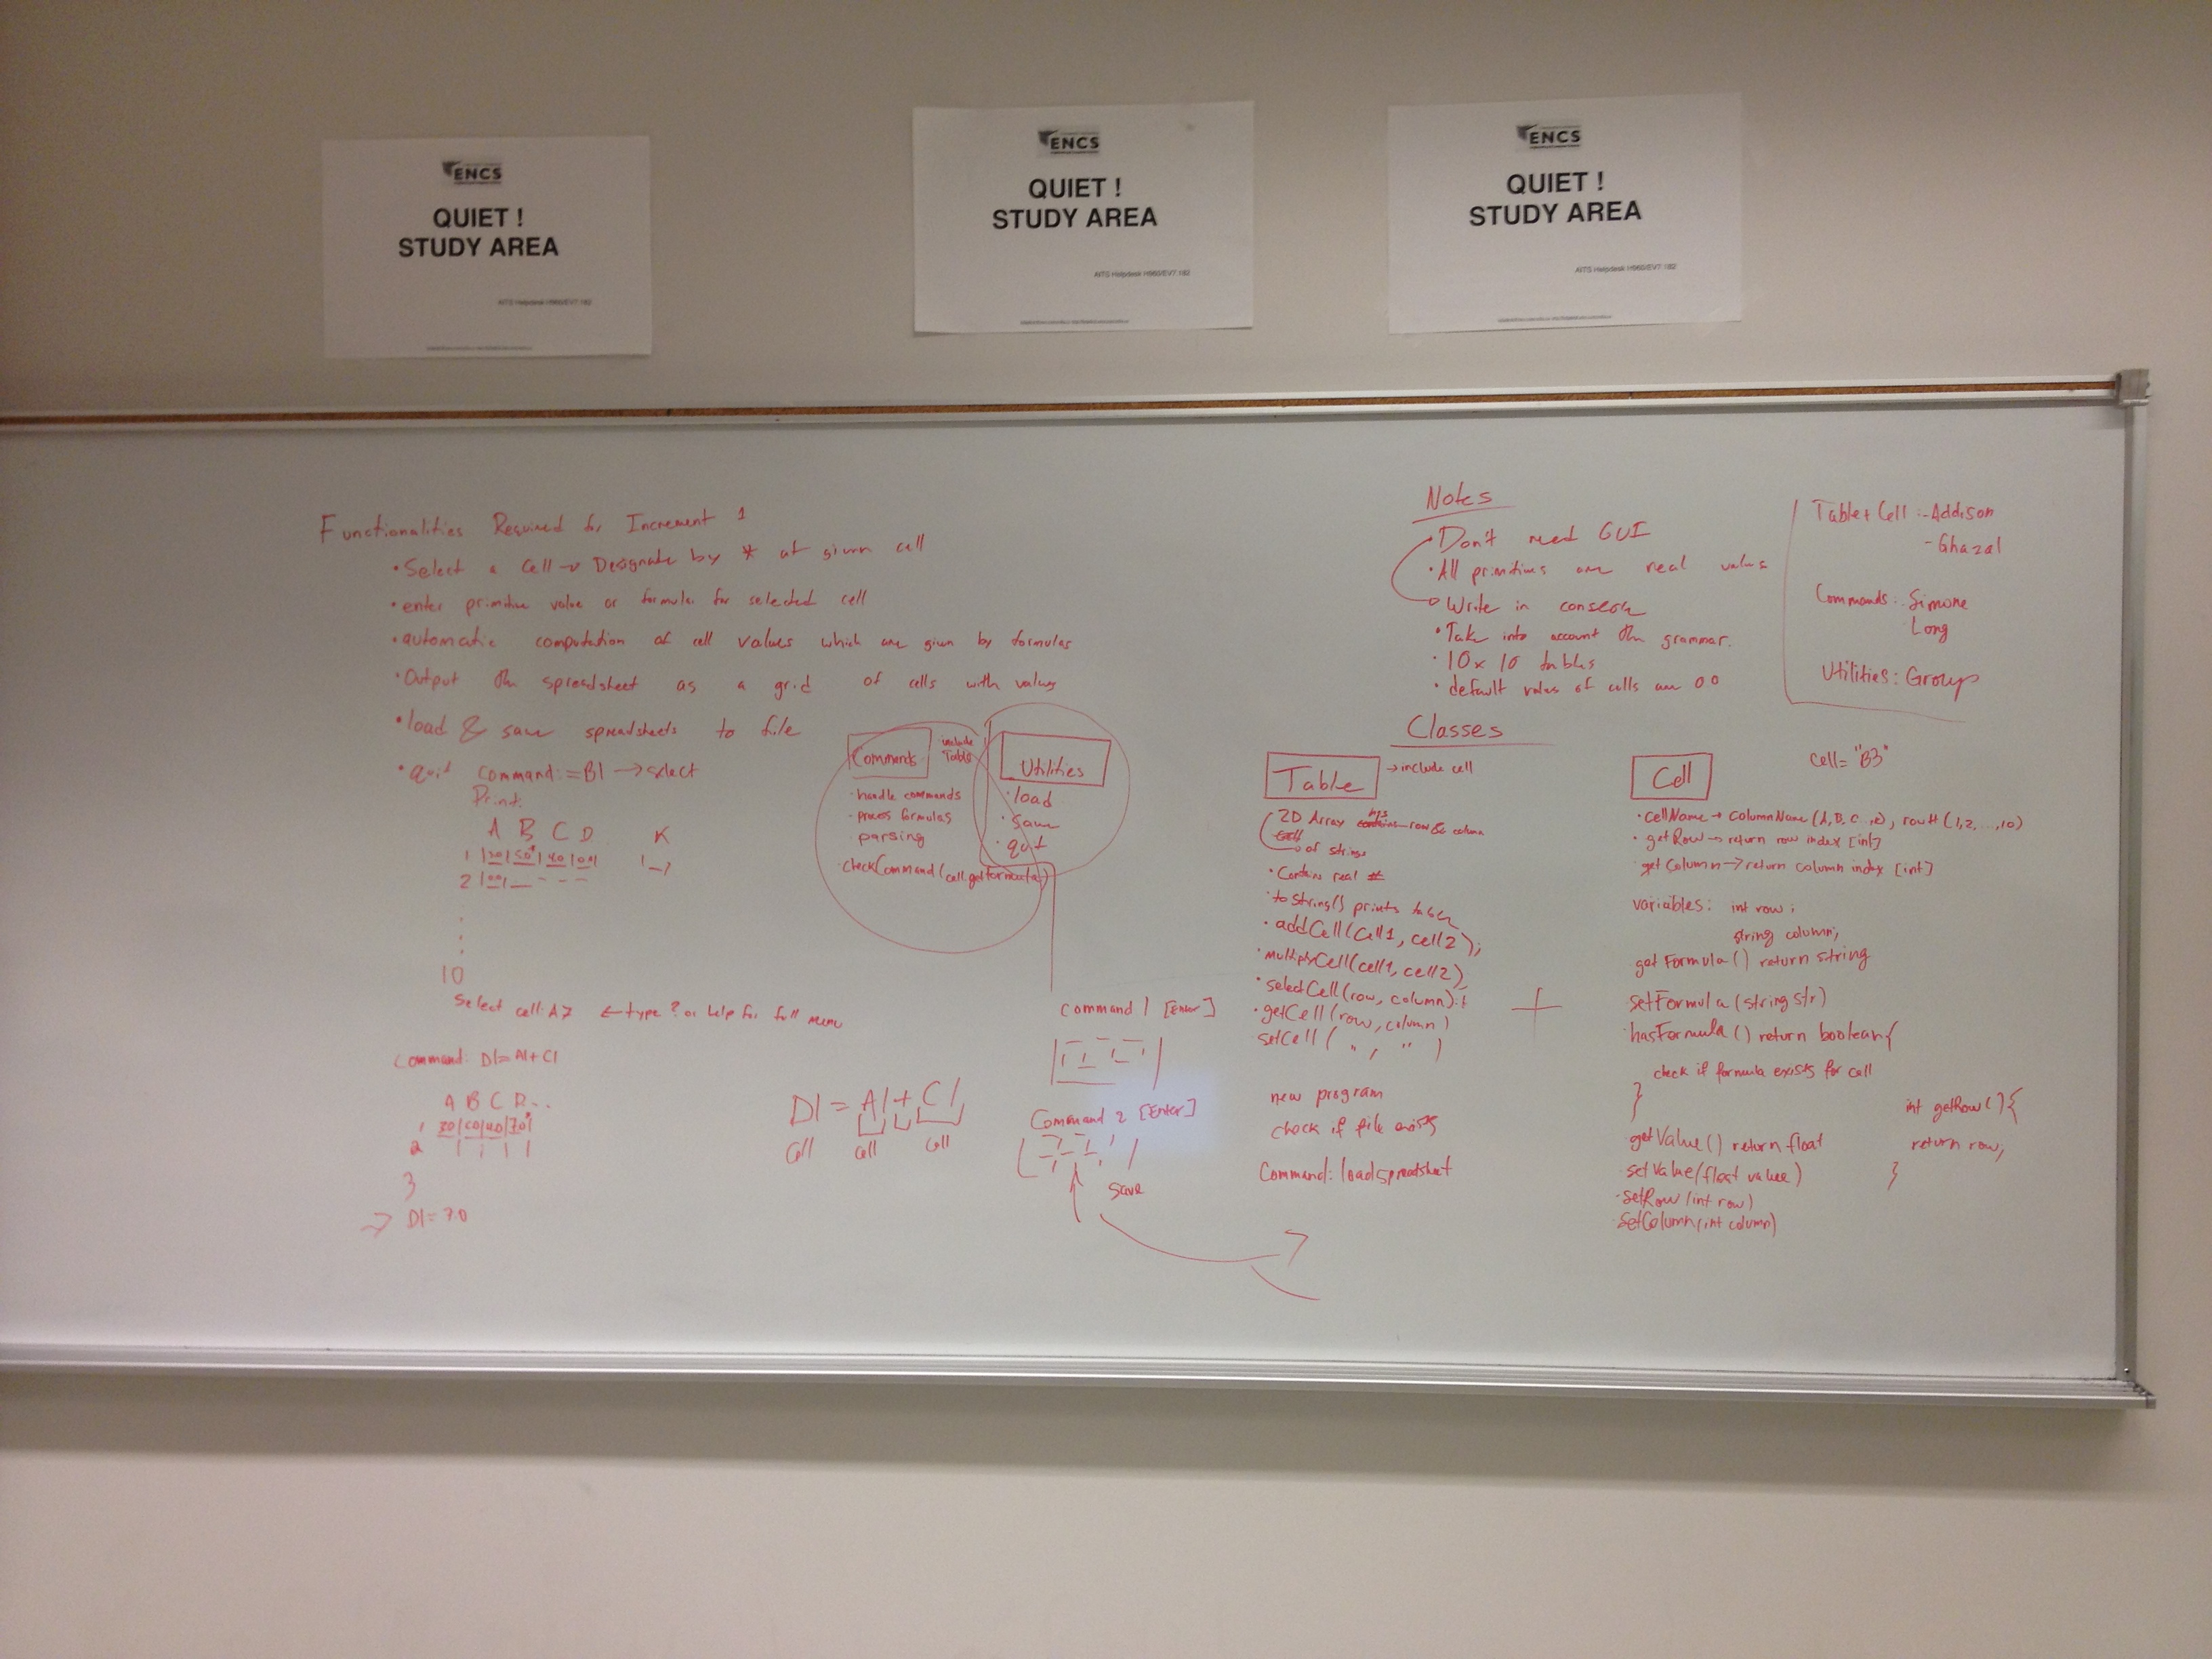 ENCS
QUIET !
STUDY AREA
AITS Helpdesk H960/EV7.182
ENCS
QUIET !
STUDY AREA
AITS Helpdesk H960/EV7.182
ENCS
QUIET !
STUDY AREA
AITS Helpdesk H960/EV7.182
Functionalities Required for Increment 1
• Select a cell → Designate by * at given cell
• enter primitive value or formula for selected cell
• automatic computation of cell values which are given by formulas
• Output the spreadsheet as a grid of cells with values
• load & save spreadsheets to file
• quit command:=B1 → select
Print:
A B C D K
1
2
10
Select cell: A7 ← type ? or help for full menu
Command: D1=A1+C1
A B C D..
1
2
3
→ D1=7.0
Commands
include Table
• handle commands
- process formulas
parsing
checkCommand(cell.getformula)
Utilities
• load
• save
• quit
D1 = A1 + C1
Cell cell cell
Command 1 [Enter]
Command 2 [Enter]
save
Notes
Don't need GUI
• All primitives are real values
Write in console
• Take into account the grammar.
• 10x10 tables
• default values of cells are 0.0
Table + Cell :- Addison
- Ghazal
Commands: Simone
Long
Utilities: Group
Classes
Table
→ include cell
2D Array has row & column
of strings
• Contains real #
• toString() prints table
• addCell(cell1, cell2);
• multiplyCell(cell1, cell2)
• selectCell(row, column):
• getCell(row, column)
setCell( " , " )
new program
check if file exists
Command: loadspreadsheet
Cell
cell="B3"
• cellName → columnName(A,B,C..,K), row#(1,2,...,10)
• getRow → return row index [int]
getColumn → return column index [int]
variables: int row;
string column;
getFormula() return string
setFormula(string str)
hasFormula() return boolean{
check if formula exists for cell
}
getValue() return float
setValue(float value)
• setRow(int row)
• setColumn(int column)
int getRow(){
return row;
}